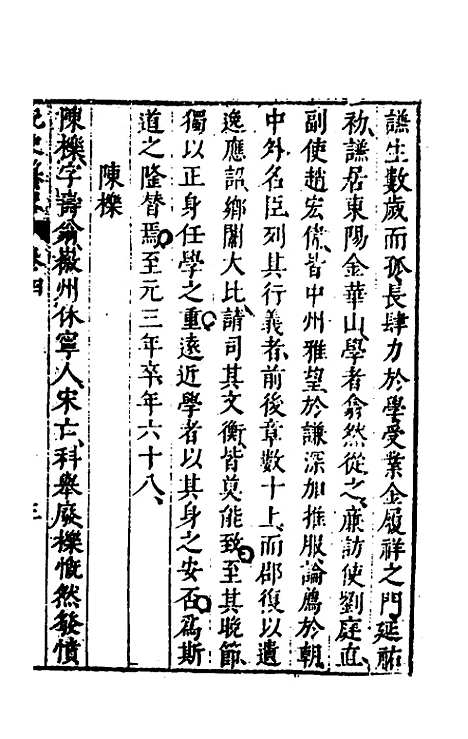 謙生數歲而孤長肆力於學受業金履祥之門延祐
初謙居東陽金華山學者翕然從之廉訪使劉庭直
副使趙宏偉皆中州雅望於謙深加推服論薦於朝
中外名臣列其行義者前後章數十上而郡復以遺
逸應詔鄉闈大比請司其文衡皆莫能致至其晚節
獨以正身任學之重遠近學者以其身之安否爲斯
道之隆替焉至元三年卒年六十八
陳櫟
陳櫟字壽翁徽州休寧人宋亡科舉廢櫟慨然發憤
卷四
三